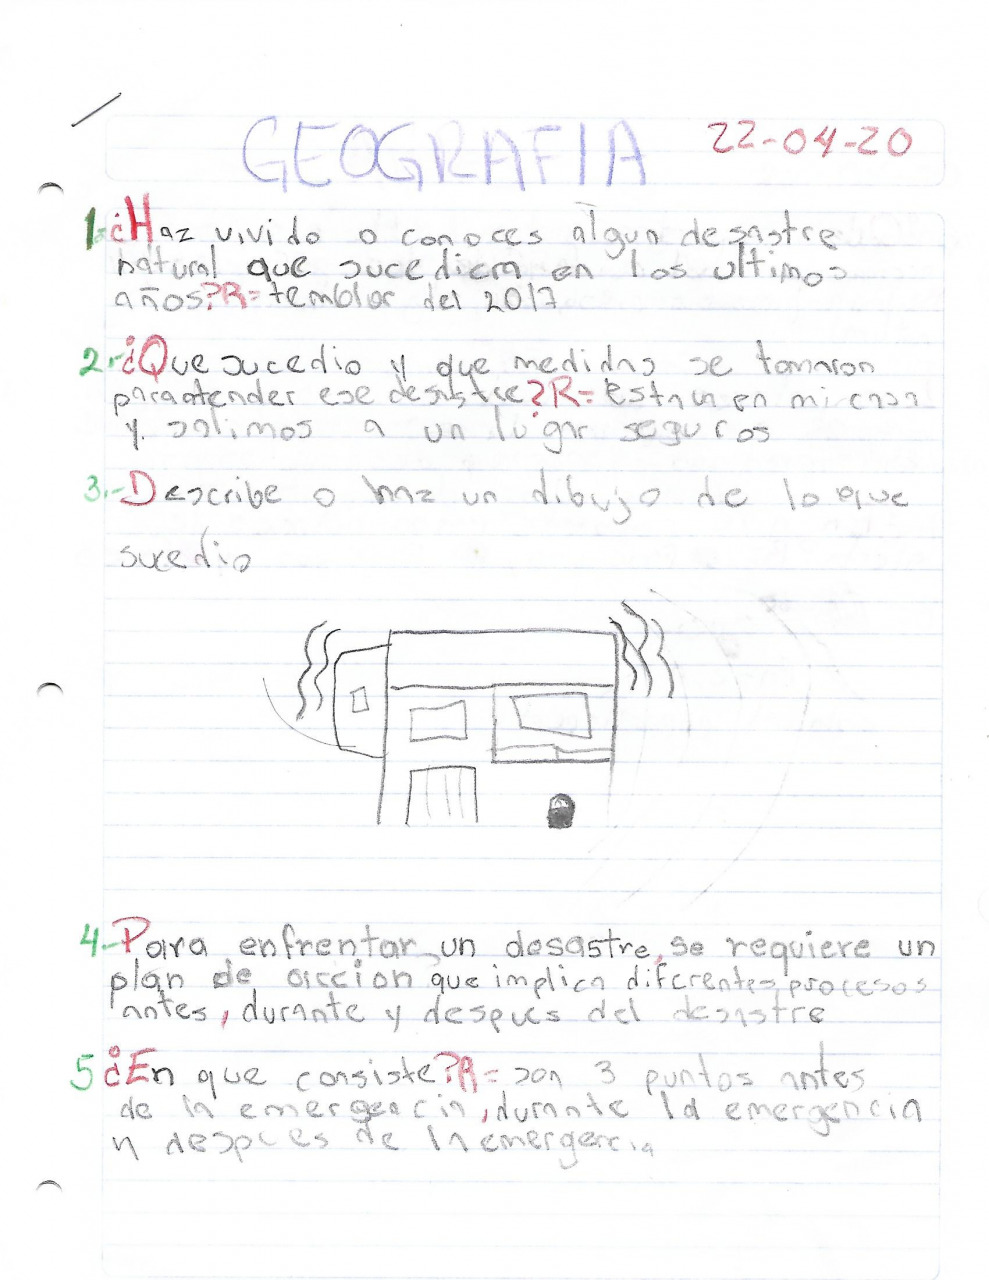 GEOGRAFIA 22-04-20
1-¿Haz vivido o conoces algun desastre
natural que sucediera en los ultimos
años?R= temblor del 2017
2.-¿Que sucedio y que medidas se tomaron
para atender ese desastre?R= estava en mi casa
y salimos a un lugar seguros
3.-Describe o haz un dibujo de lo que
sucedio
4.-Para enfrentar un desastre, se requiere un
plan de accion que implica diferentes procesos
antes, durante y despues del desastre
5 ¿En que consiste?R= son 3 puntos antes
de la emergencia, durante la emergencia
y despues de la emergencia